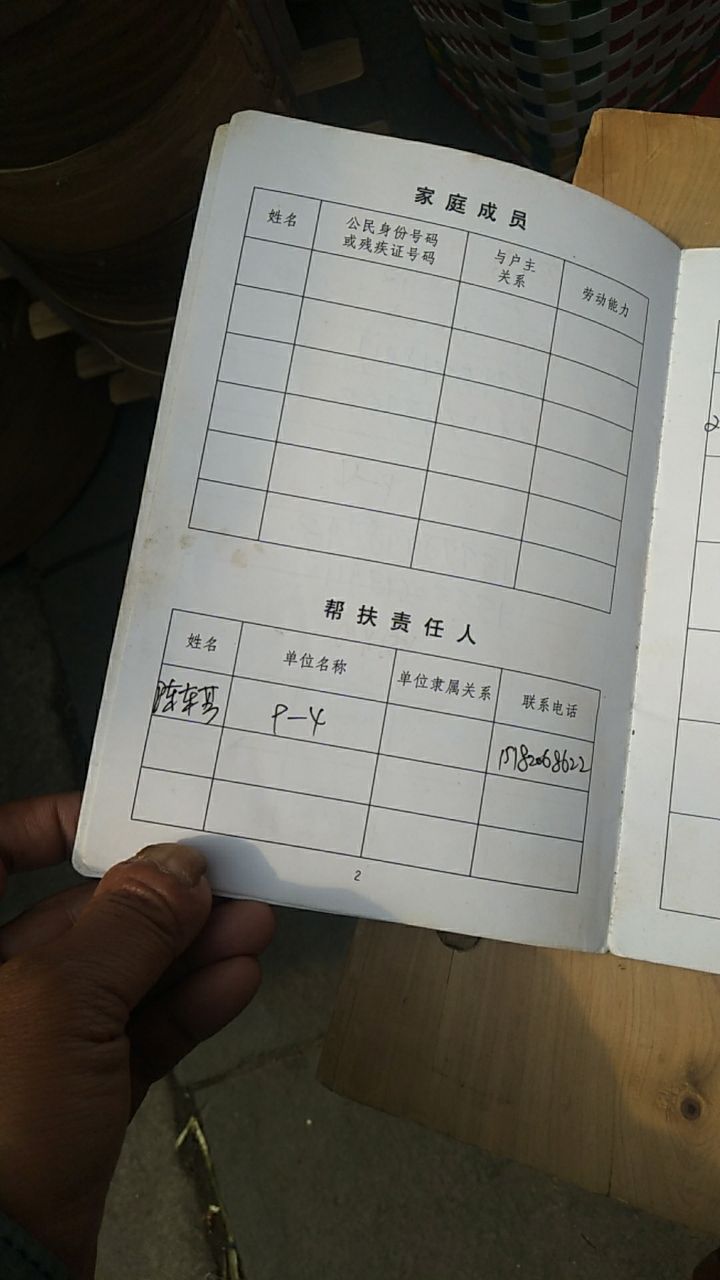 家庭成员
姓名 公民身份号码 或残疾证号码 与户主 关系 劳动能力
帮扶责任人
姓名 单位名称 单位隶属关系 联系电话
15182068622
2